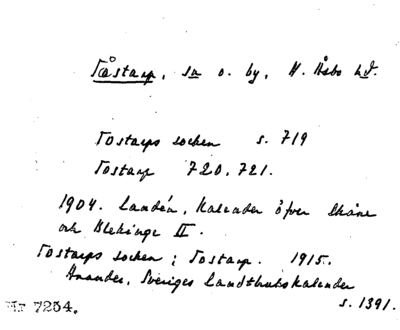 Tåstarp, sn o. by, N. Åsbo hd.
Tostarps socken s. 719
Tostarp 720, 721.
1904. Landén, Kalender öfver Skåne
och Blekinge II.
Tostarps socken; Tostarp. 1915.
Anander, Sveriges Landtbrukskalender
s. 1391.
Nr 7254.